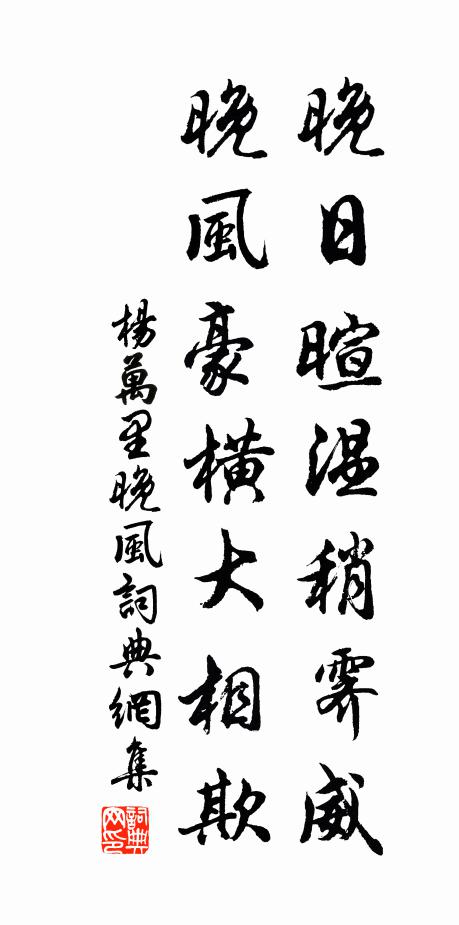 晚日暄温稍霽威
晚風豪橫大相欺
楊萬里晚風詞典網集
詞典
网印